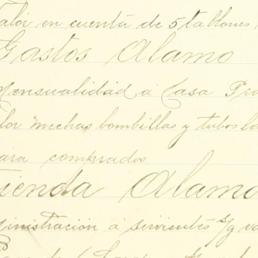 Valor en cuenta de 5 tallones
Gastos Alamo
Mensualidad á Casa
lor mechas bombillas y tubos
para comprados
tienda Alamo
ministración á sirvientes s/g